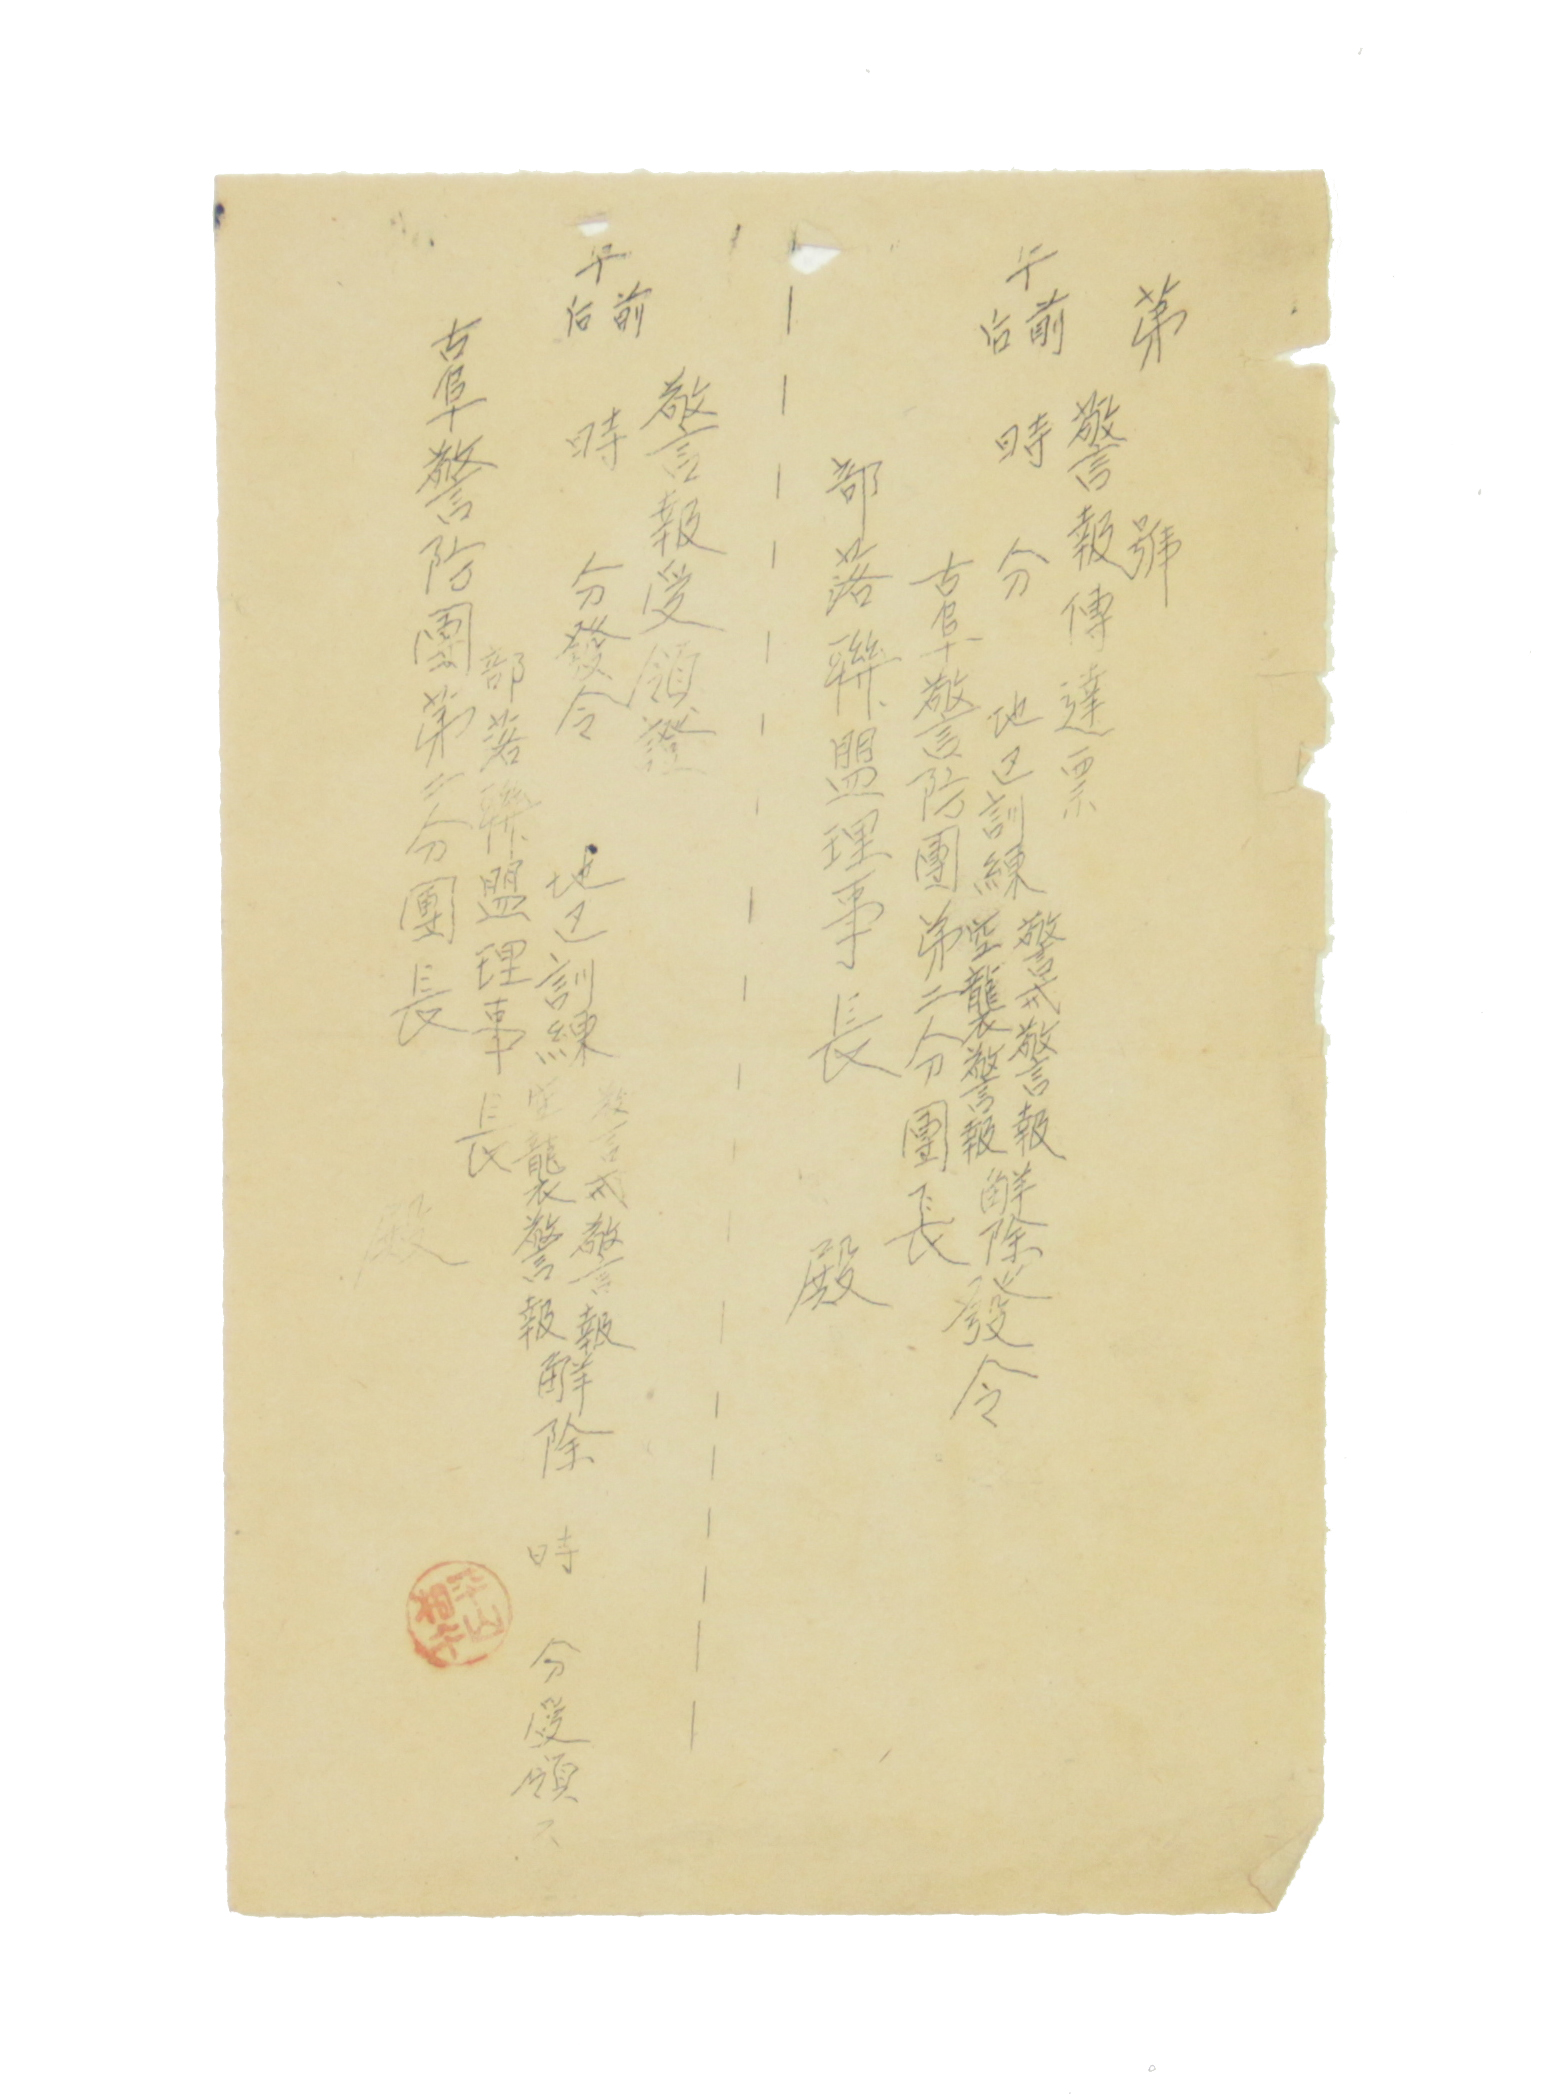 第　號
警報傳達票
午前
後　時　分　地区訓練
警戒警報
空襲警報
解除發令
古阜警防團第二分團長
部落聯盟理事長　殿
警報受領證
午前
后　時　分發令　地区訓練
警戒警報
空襲警報
解除　時　分受領ス
部落聯盟理事長
古阜警防團第二分團長　殿